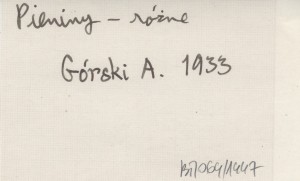 Pieniny - różne
Górski A. 1933
BJ/064/1447